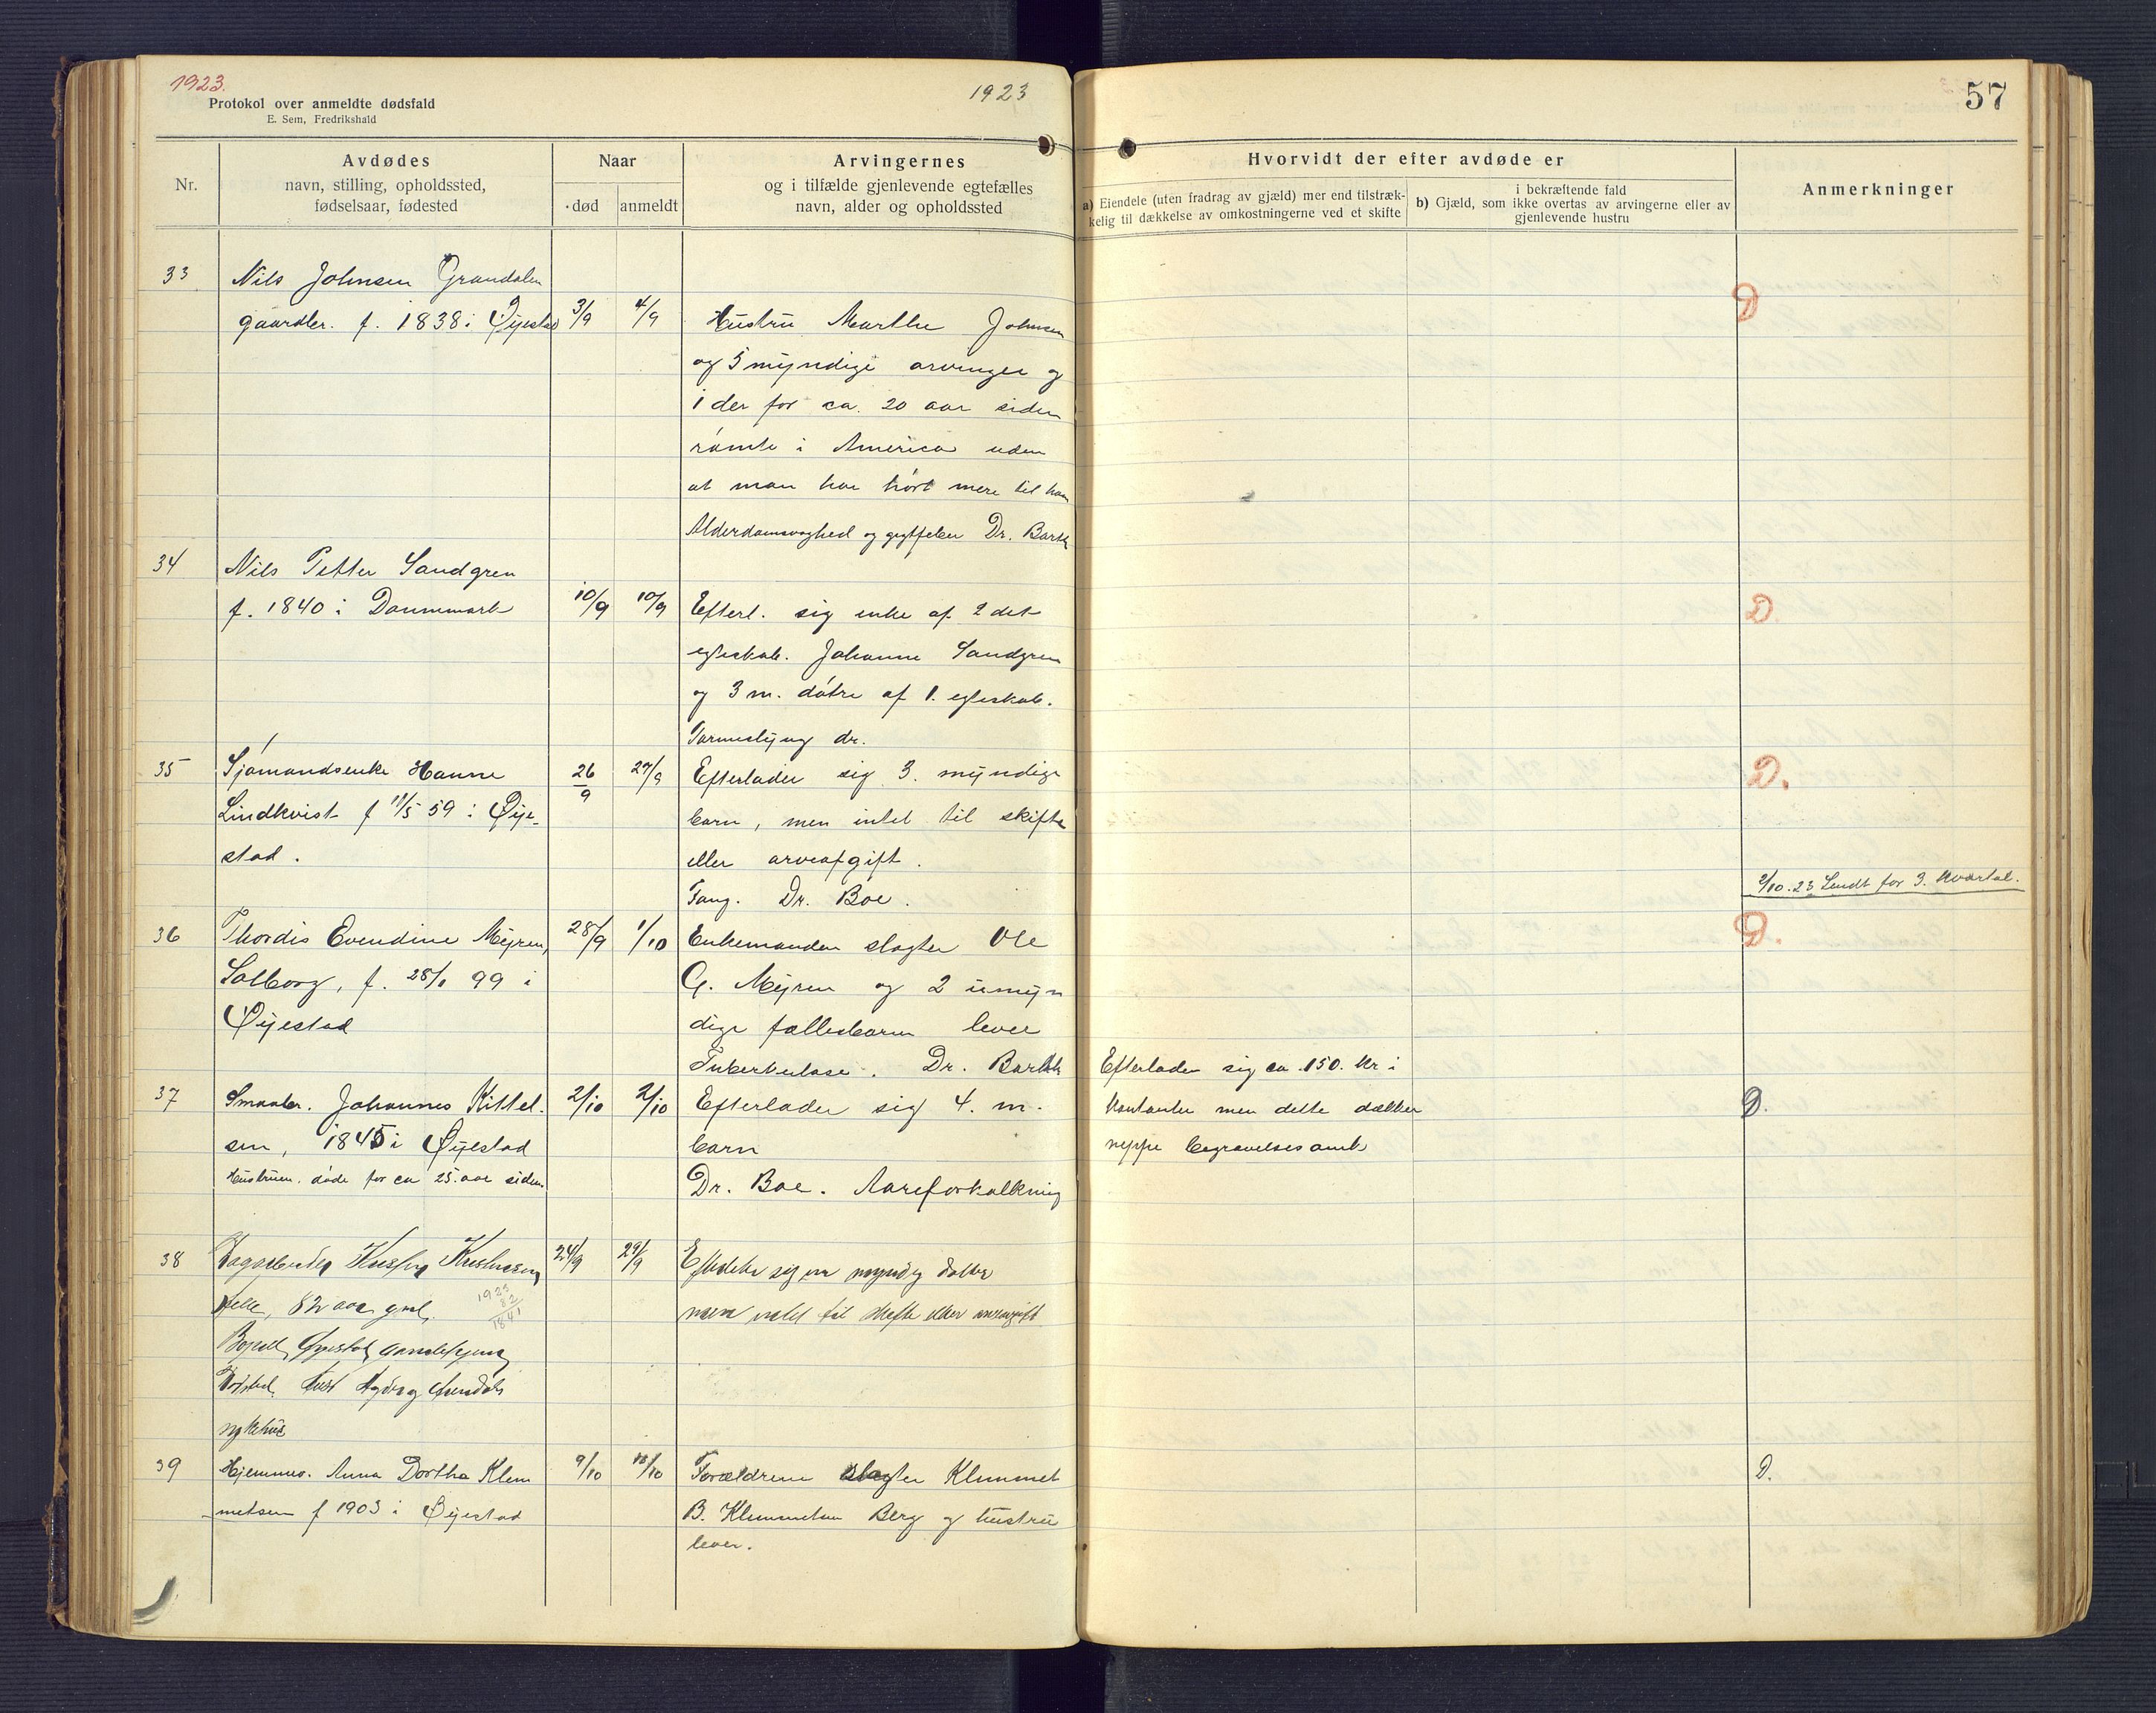 1923.
Protokol over anmeldte dødsfald
E. Sem, Fredrikshald
1923
57
Nr.
Avdødes
navn, stilling, opholdssted,
fødselsaar, fødested
Naar
død
anmeldt
Arvingernes
og i tilfælde gjenlevende egtefælles
navn, alder og opholdssted
Hvorvidt der efter avdøde er
a) Eiendele (uten fradrag av gjæld) mer end tilstræk-
kelig til dækkelse av omkostningerne ved et skifte
i bekræftende fald
b) Gjæld, som ikke overtas av arvingerne eller av
gjenlevende hustru
Anmerkninger
33
Nils Johnsen Grandalen
gaardbr. f. 1838 i Øyestad
3/9
4/9
Hustru Marthe Johnsen
og 5 myndige arvinger og
1 der for ca. 20 aar siden
rømte i America uden
at man har hørt mere til ham
Alderdomsvaghed og Dr. Barth
D
34
Nils Petter Sandgren
f. 1840 i Dannmark
10/9
10/9
Efterl. sig enke af 2det
egteskab. Johanne Sandgren
og 3 m. døtre af 1. egteskab.
dr.
D.
35
Sjømandsenke Hanne
Lindkvist f 11/5 59 i Øye-
stad.
26/9
27/9
Efterlader sig 3. myndige
barn, men intet til skifte
eller arveafgift.
Tang. Dr. Boe.
D.
2/10.23 Sendt for 3. kvartal.
36
Thordis Evendine Myren,
Solborg, f. 28/1 99 i
Øyestad
28/9
1/10
Enkemanden slagter Ole
G. Myren og 2 umyn
dige fællesbarn lever
Tuberkulose. Dr. Barth
D.
37
Smaabr. Johannes Kittel.
sen, 1845 i Øyestad
Hustruen. døde for ca 25. aar siden.
2/10
2/10
Efterlader sig 4. m.
barn
Dr. Boe. Aareforkalkning
Efterlader sig ca. 150. kr i
kontanter men dette dækker
neppe begravelsesomk
D.
38
Kristiansen
82 aar gml,
1923
82
1841
Bopæl, Øyestad
Aust Agder og Arendals
sykehus
24/9
29/9
Efterlader sig en myndig datter
men intet til skifte eller arveavgift
39
Hjemmev. Anna Dorthea Klem
metsen f 1903 i Øyestad
9/10
10/10
Forældrene slagter Klemmet
B. Klemmetsen Berg og hustru
lever.
D.